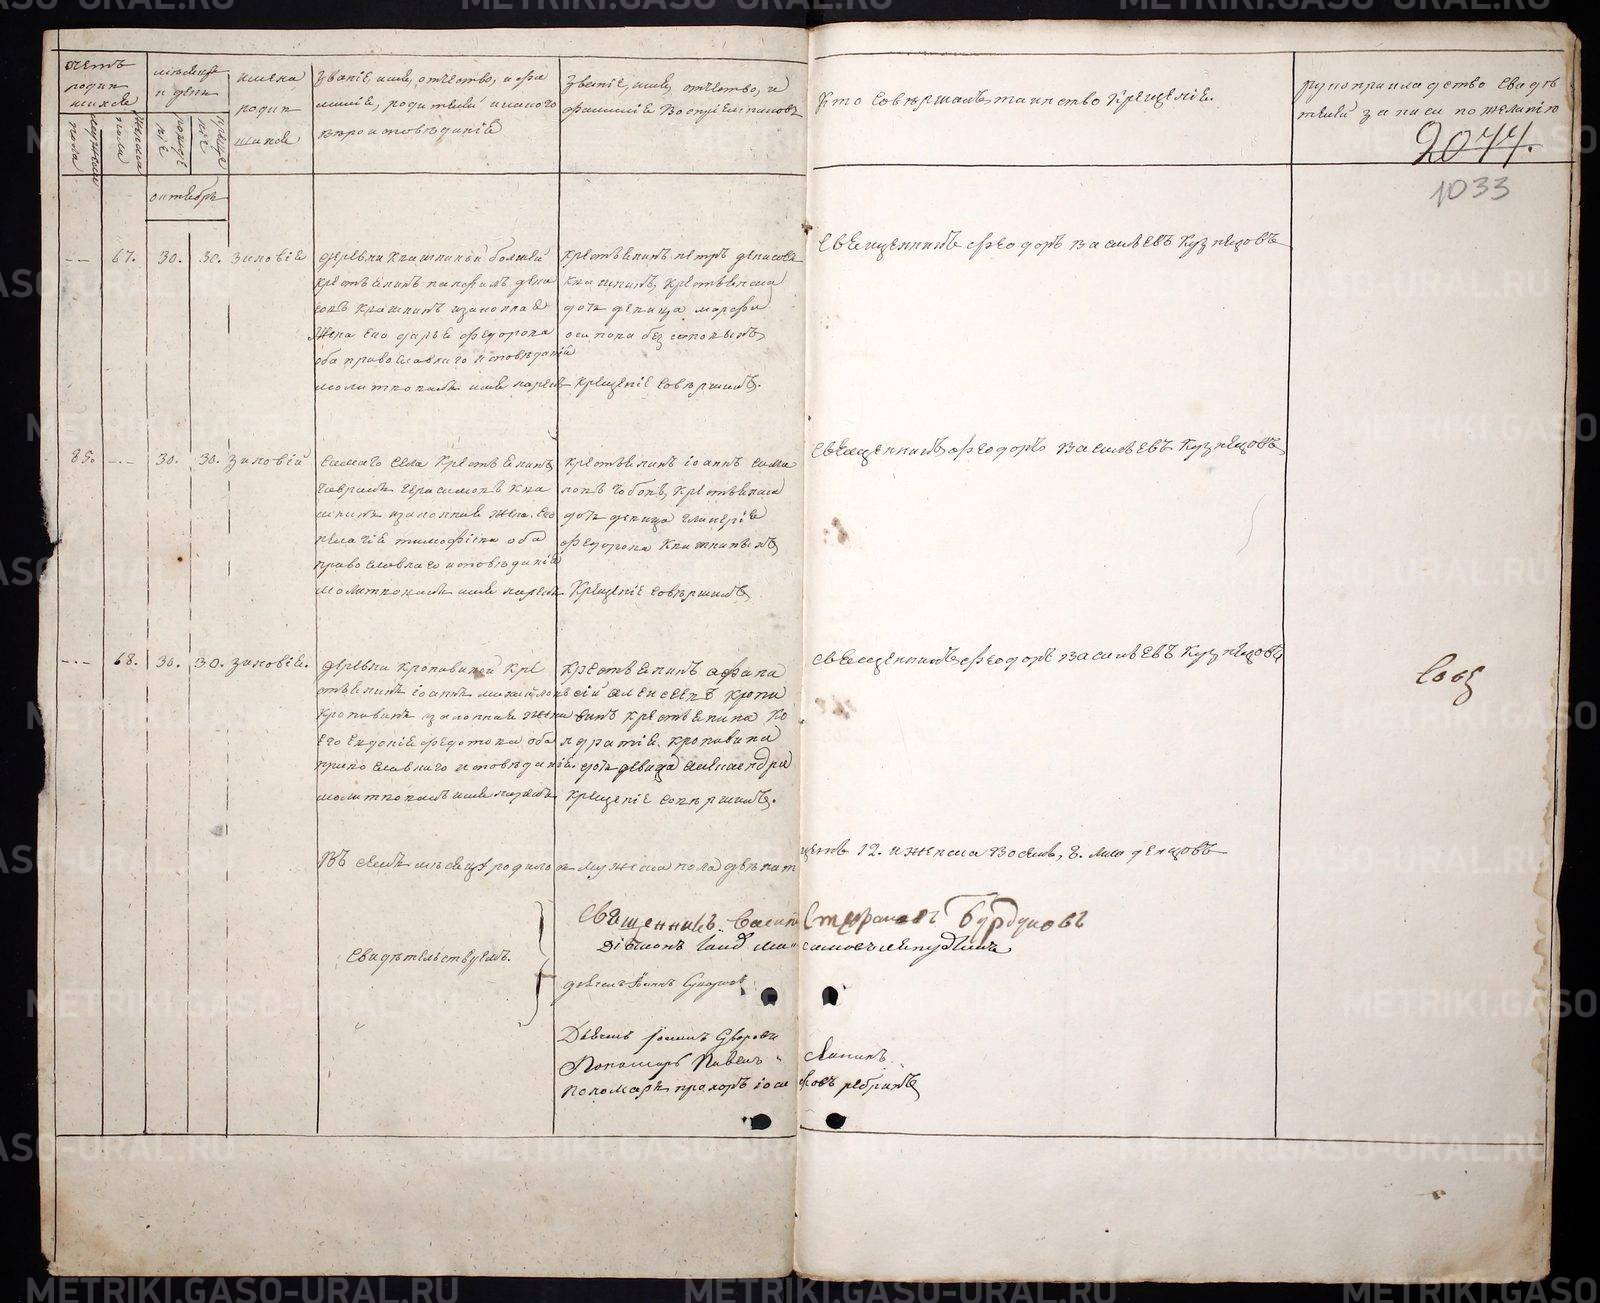 METRIKI.GASO-URAL.RU
счетъ родившихся
мужеска пола
женска пола
месяцъ и день
рождение
крещение
имена родившихся
Званіе, имя, отчество, и фамиліе, родителей и какого
вероисповѣданія
Званіе, имя, отчество, и
фамиліе Воспріемниковъ
Кто совершалъ таинство Крещеніе.
рукоприкладство свидѣ
телей записи по желанію
2044.
1033
октябрь
67. 30. 30. Зиновіе
деревни Кнашиной большей
крестьянинъ памфилъ дени
совъ Кнашинъ и законная
жена его дарья федорова
оба православнаго исповѣданія
молитвовалъ имя нарекъ
крестьянинъ петръ денисовъ
Кнашинъ, крестьянская
дочь девица марфа
осипова безсоновыхъ
крещеніе совершилъ.
Священникъ Феодоръ Василѣевъ Кузнецовъ
85. 30. 30. Зиновій
самаго села крестьянинъ
гаврилъ герасимовъ Кна
шинъ и законная жена его
пелагіе тимофеева оба
православнаго исповѣданія
молитвовалъ имя нарекъ
крестьянинъ іоаннъ
крестьянская
дочь девица гликеріе
федорова Кнашиныхъ
Крещеніе совершилъ
Священникъ Феодоръ Василѣевъ Кузнецовъ
68. 30. 30. Зиновіе.
деревни Кропивиной Кре
стьянинъ іоаннъ
Кропивинъ и законная жена
его евдокіе федотова оба
православнаго исповѣданія
молитвовалъ имя нарекъ
Крестьянинъ афана
сій алексеевъ кропи
винъ крестьянина ко
ндратіе кропивина
дочь девица александра
крещеніе совершилъ.
Священникъ Феодоръ Василѣевъ Кузнецовъ
Въ семъ мѣсяцѣ родилось мужеска пола двѣнатцеть 12. и женска восемь, 8. младенцовъ
Свидѣтельствуемъ.
Священникъ Стефановъ Бурдуковъ
Діаконъ
дьячекъ Іоаннъ Суворовъ
Дьячекъ Іоаннъ Суворовъ
Пономарь Павелъ Ляпинъ
Пономарь прохоръ іосифовъ ребринъ